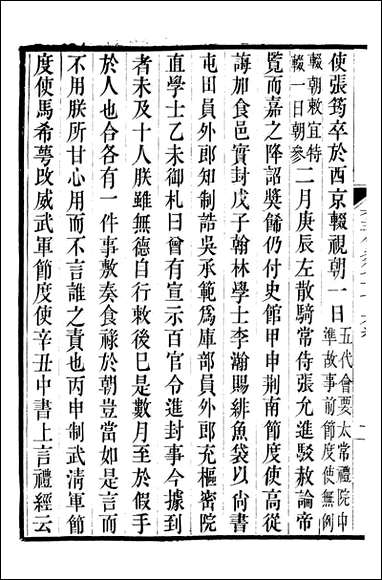 使張筠卒於西京輟視朝一日五代會要太常禮院申
準故事前節度使無例
輟朝敕宜特
輟一日朝參二月庚辰左散騎常侍張允進駁赦論帝
覽而嘉之降詔獎飾仍付史館甲申荆南節度使高從
誨加食邑實封戊子翰林學士李瀚賜緋魚袋以尚書
屯田員外郎知制誥吳承範爲庫部員外郎充樞密院
直學士乙未御札曰曾有宣示百官令進封事今據到
者未及十人朕雖無德自行敕後巳是數月至於假手
於人也合各有一件事敷奏食祿於朝豈當如是言而
不用朕所甘心用而不言誰之責也丙申制武清軍節
度使馬希萼改威武軍節度使辛丑中書上言禮經云